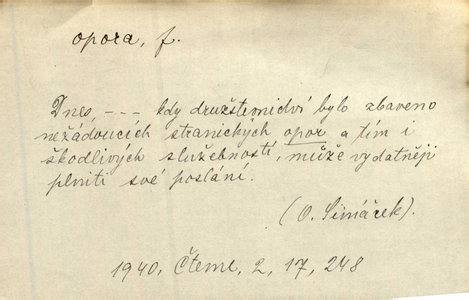 opora, f.
Dnes, --- kdy družstevnictví bylo zbaveno
nežádoucích stranických opor a tím i
škodlivých služebností, může vydatněji
plniti své poslání.
(O. Šimáček).
1940. Čteme, 2, 17, 248